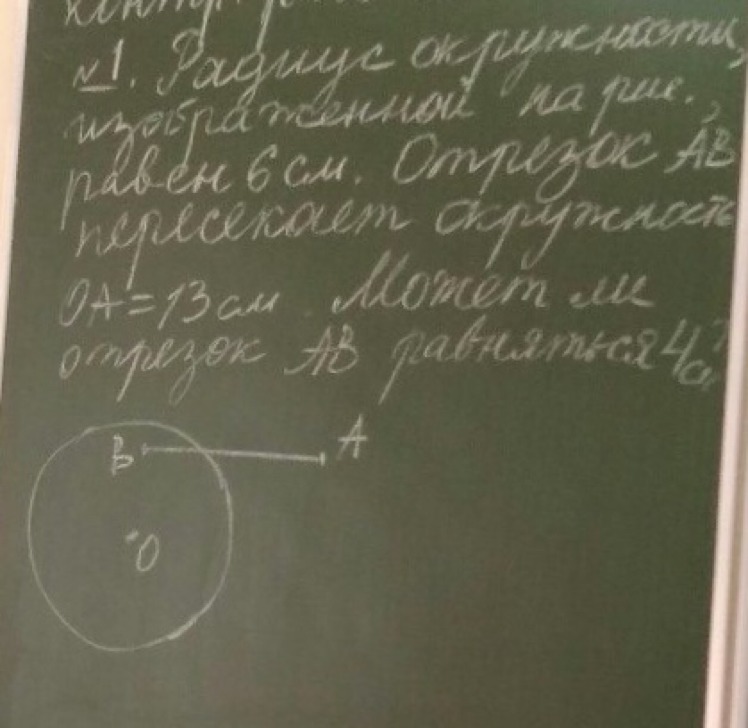 №1. Радиус окружности,
изображенной на рис.,
равен 6 см. Отрезок АВ
пересекает окружность
ОА=13см. Может ли
отрезок АВ равняться 4см?
В
А
О